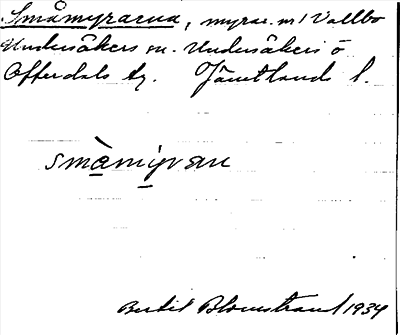 Småmyrarna, myrar. m/ Vallbo
Undersåkers sn. Undersåkers o
Offerdals tg. Jämtlands l.
småmyran
Bertil Blomstrand 1934